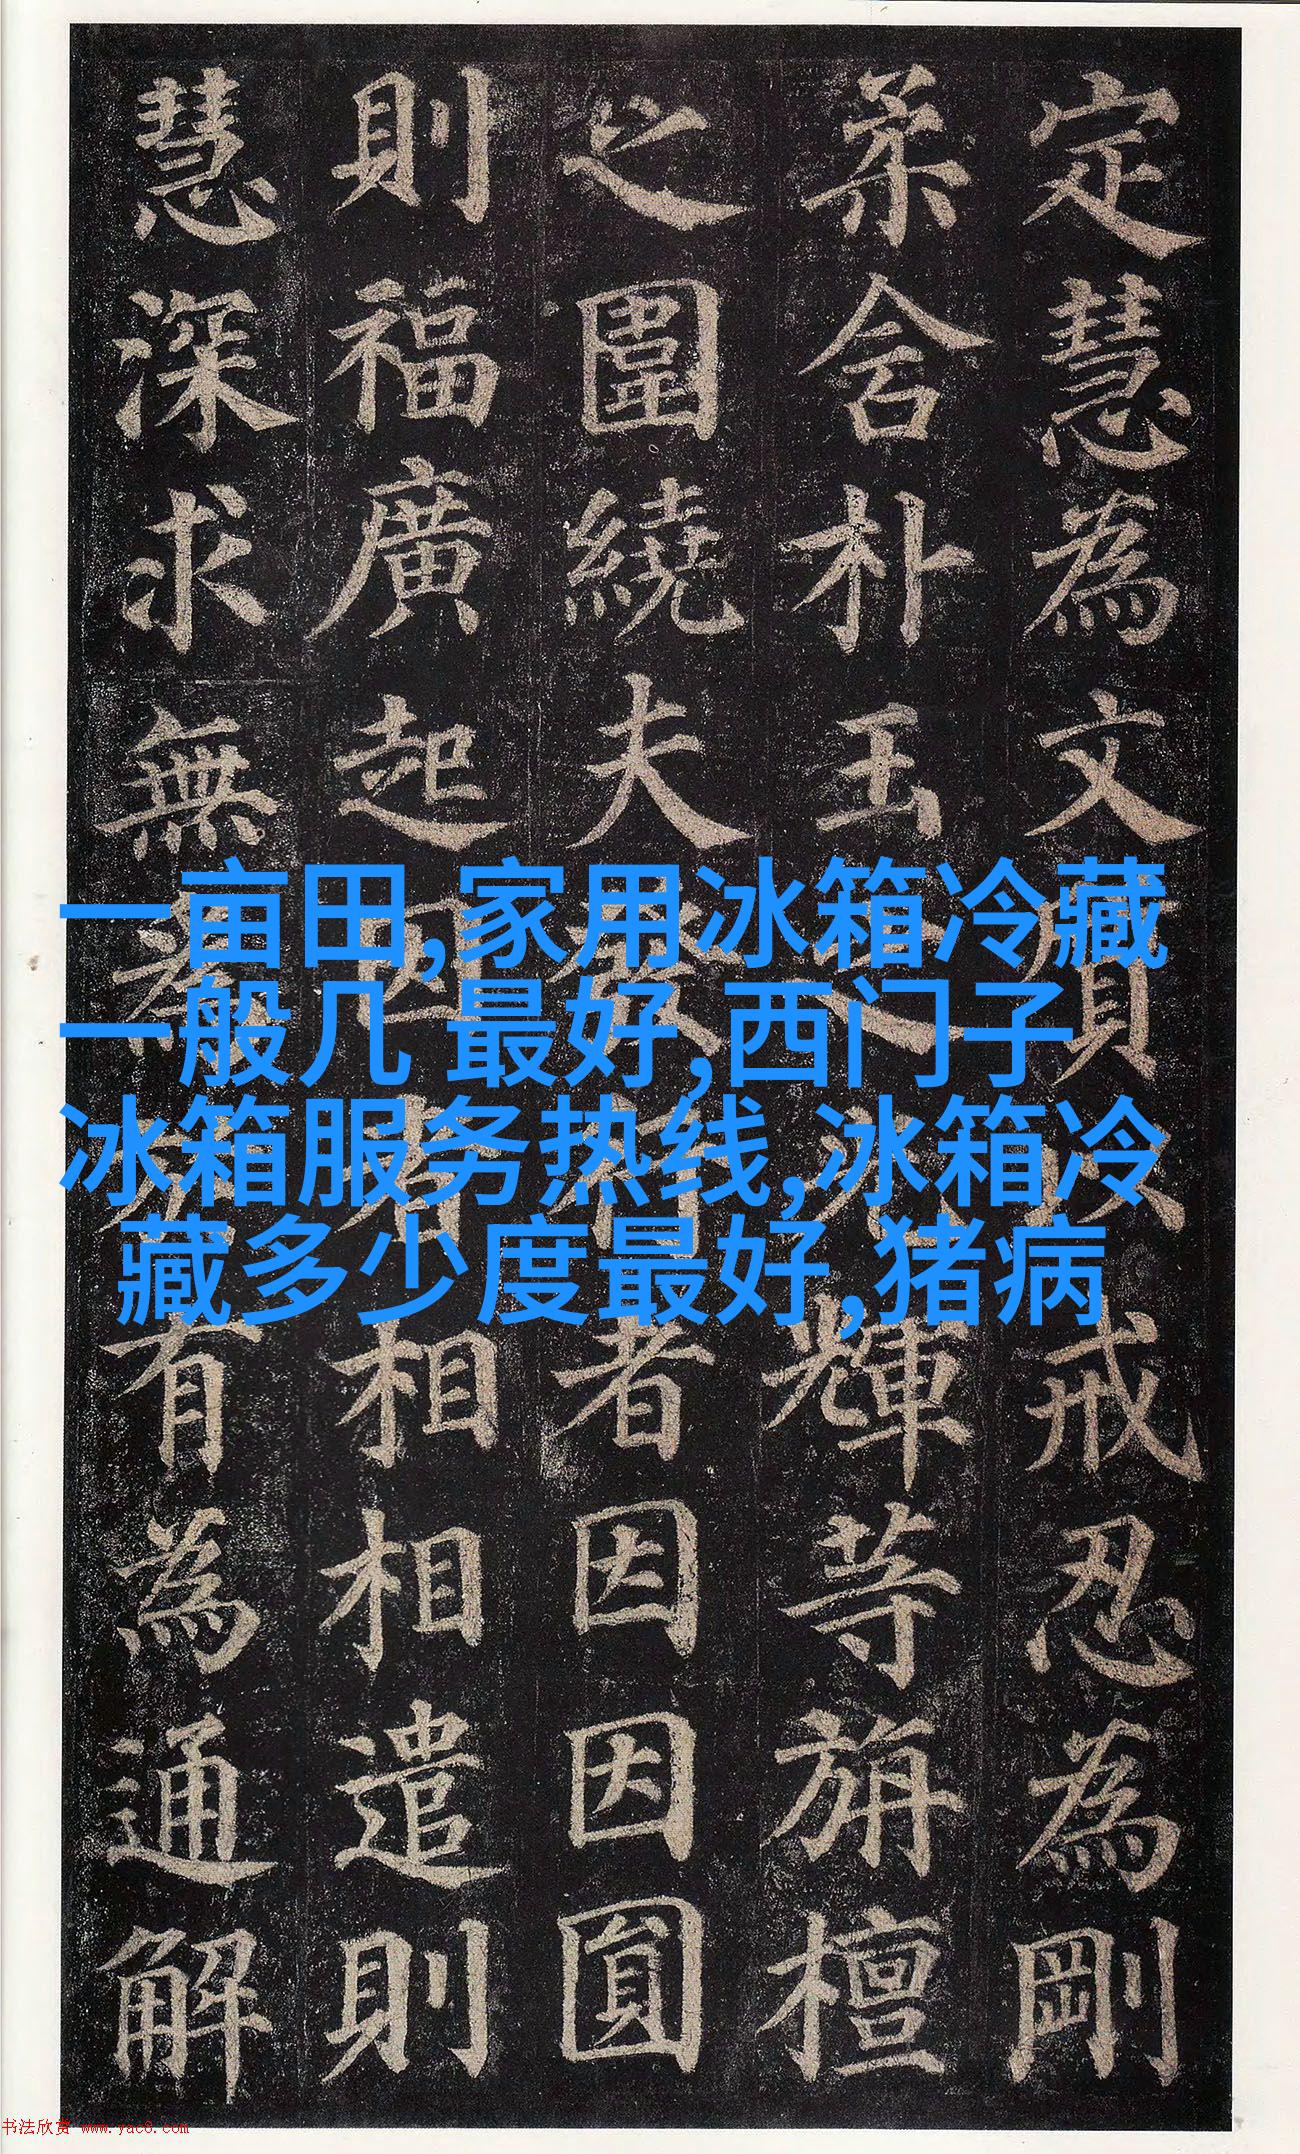 定慧為文質以戒忍為剛
柔含朴玉之光輝等旃檀
之圍繞夫發行者因因圓
則福廣起因者相相遣則
慧深求無為於有為通解
一亩田,家用冰箱冷藏
一般几 最好,西门子
冰箱服务热线,冰箱冷
藏多少度最好,猪病
书法欣赏 www.yac8.com